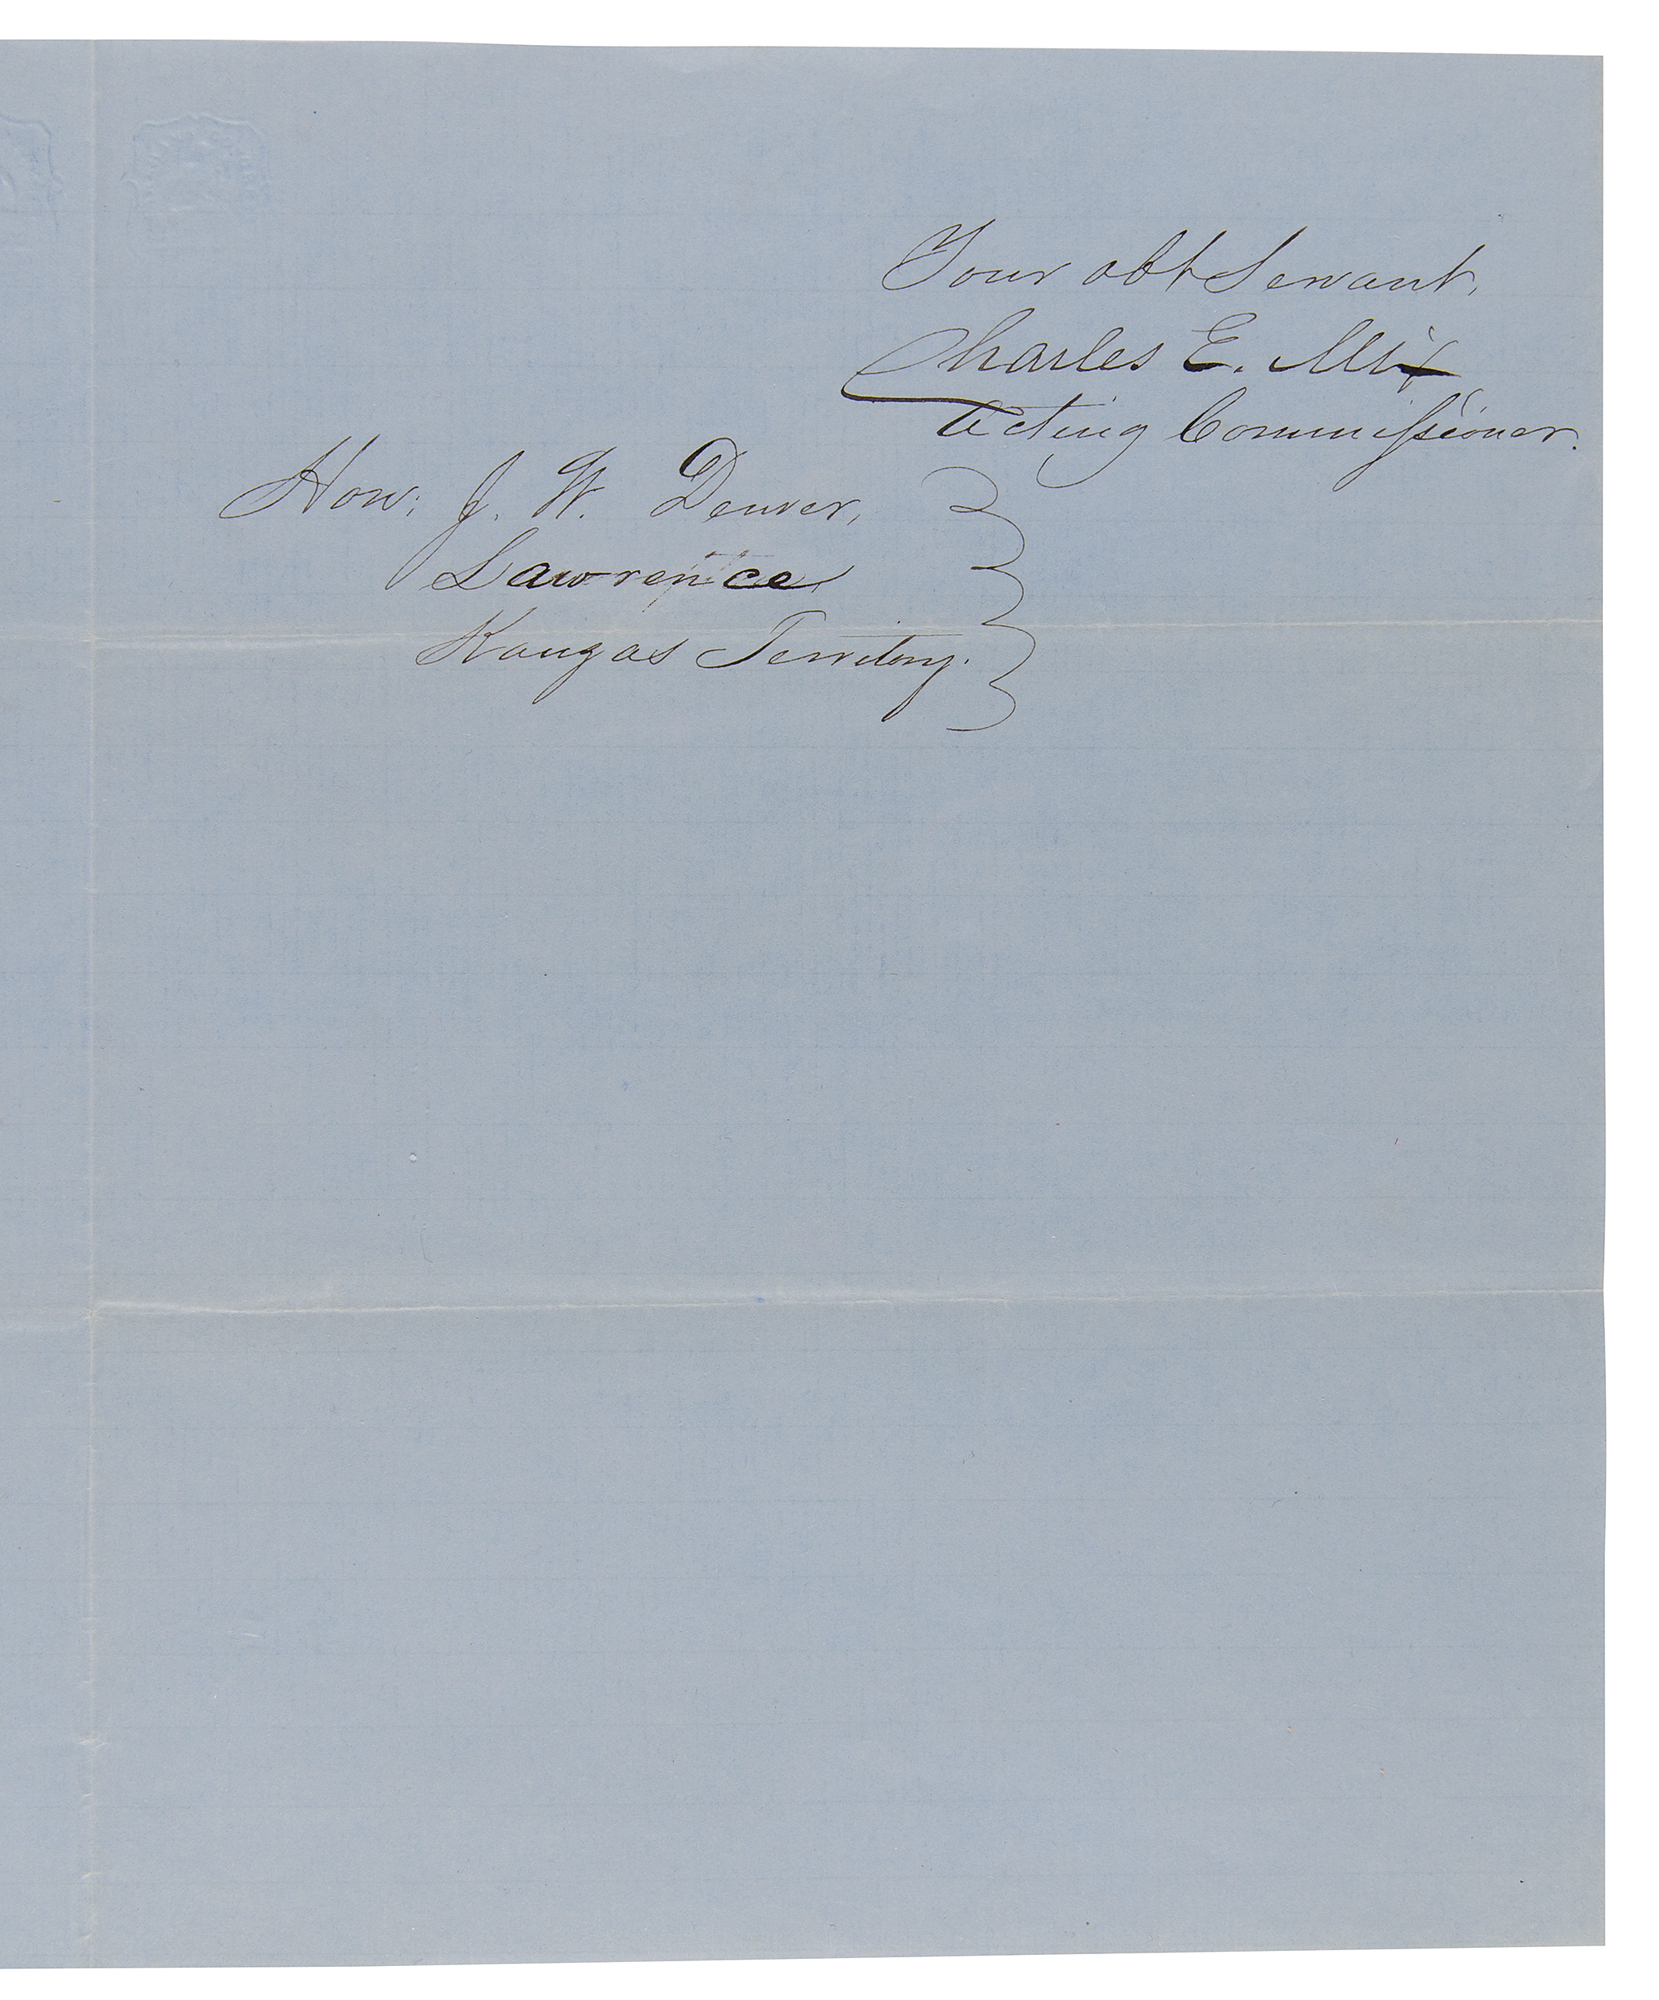 Your obt Servant,
Charles E. Mix
Acting Commissioner.
Hon: J. W. Denver,
Lawrence,
Kansas Territory.